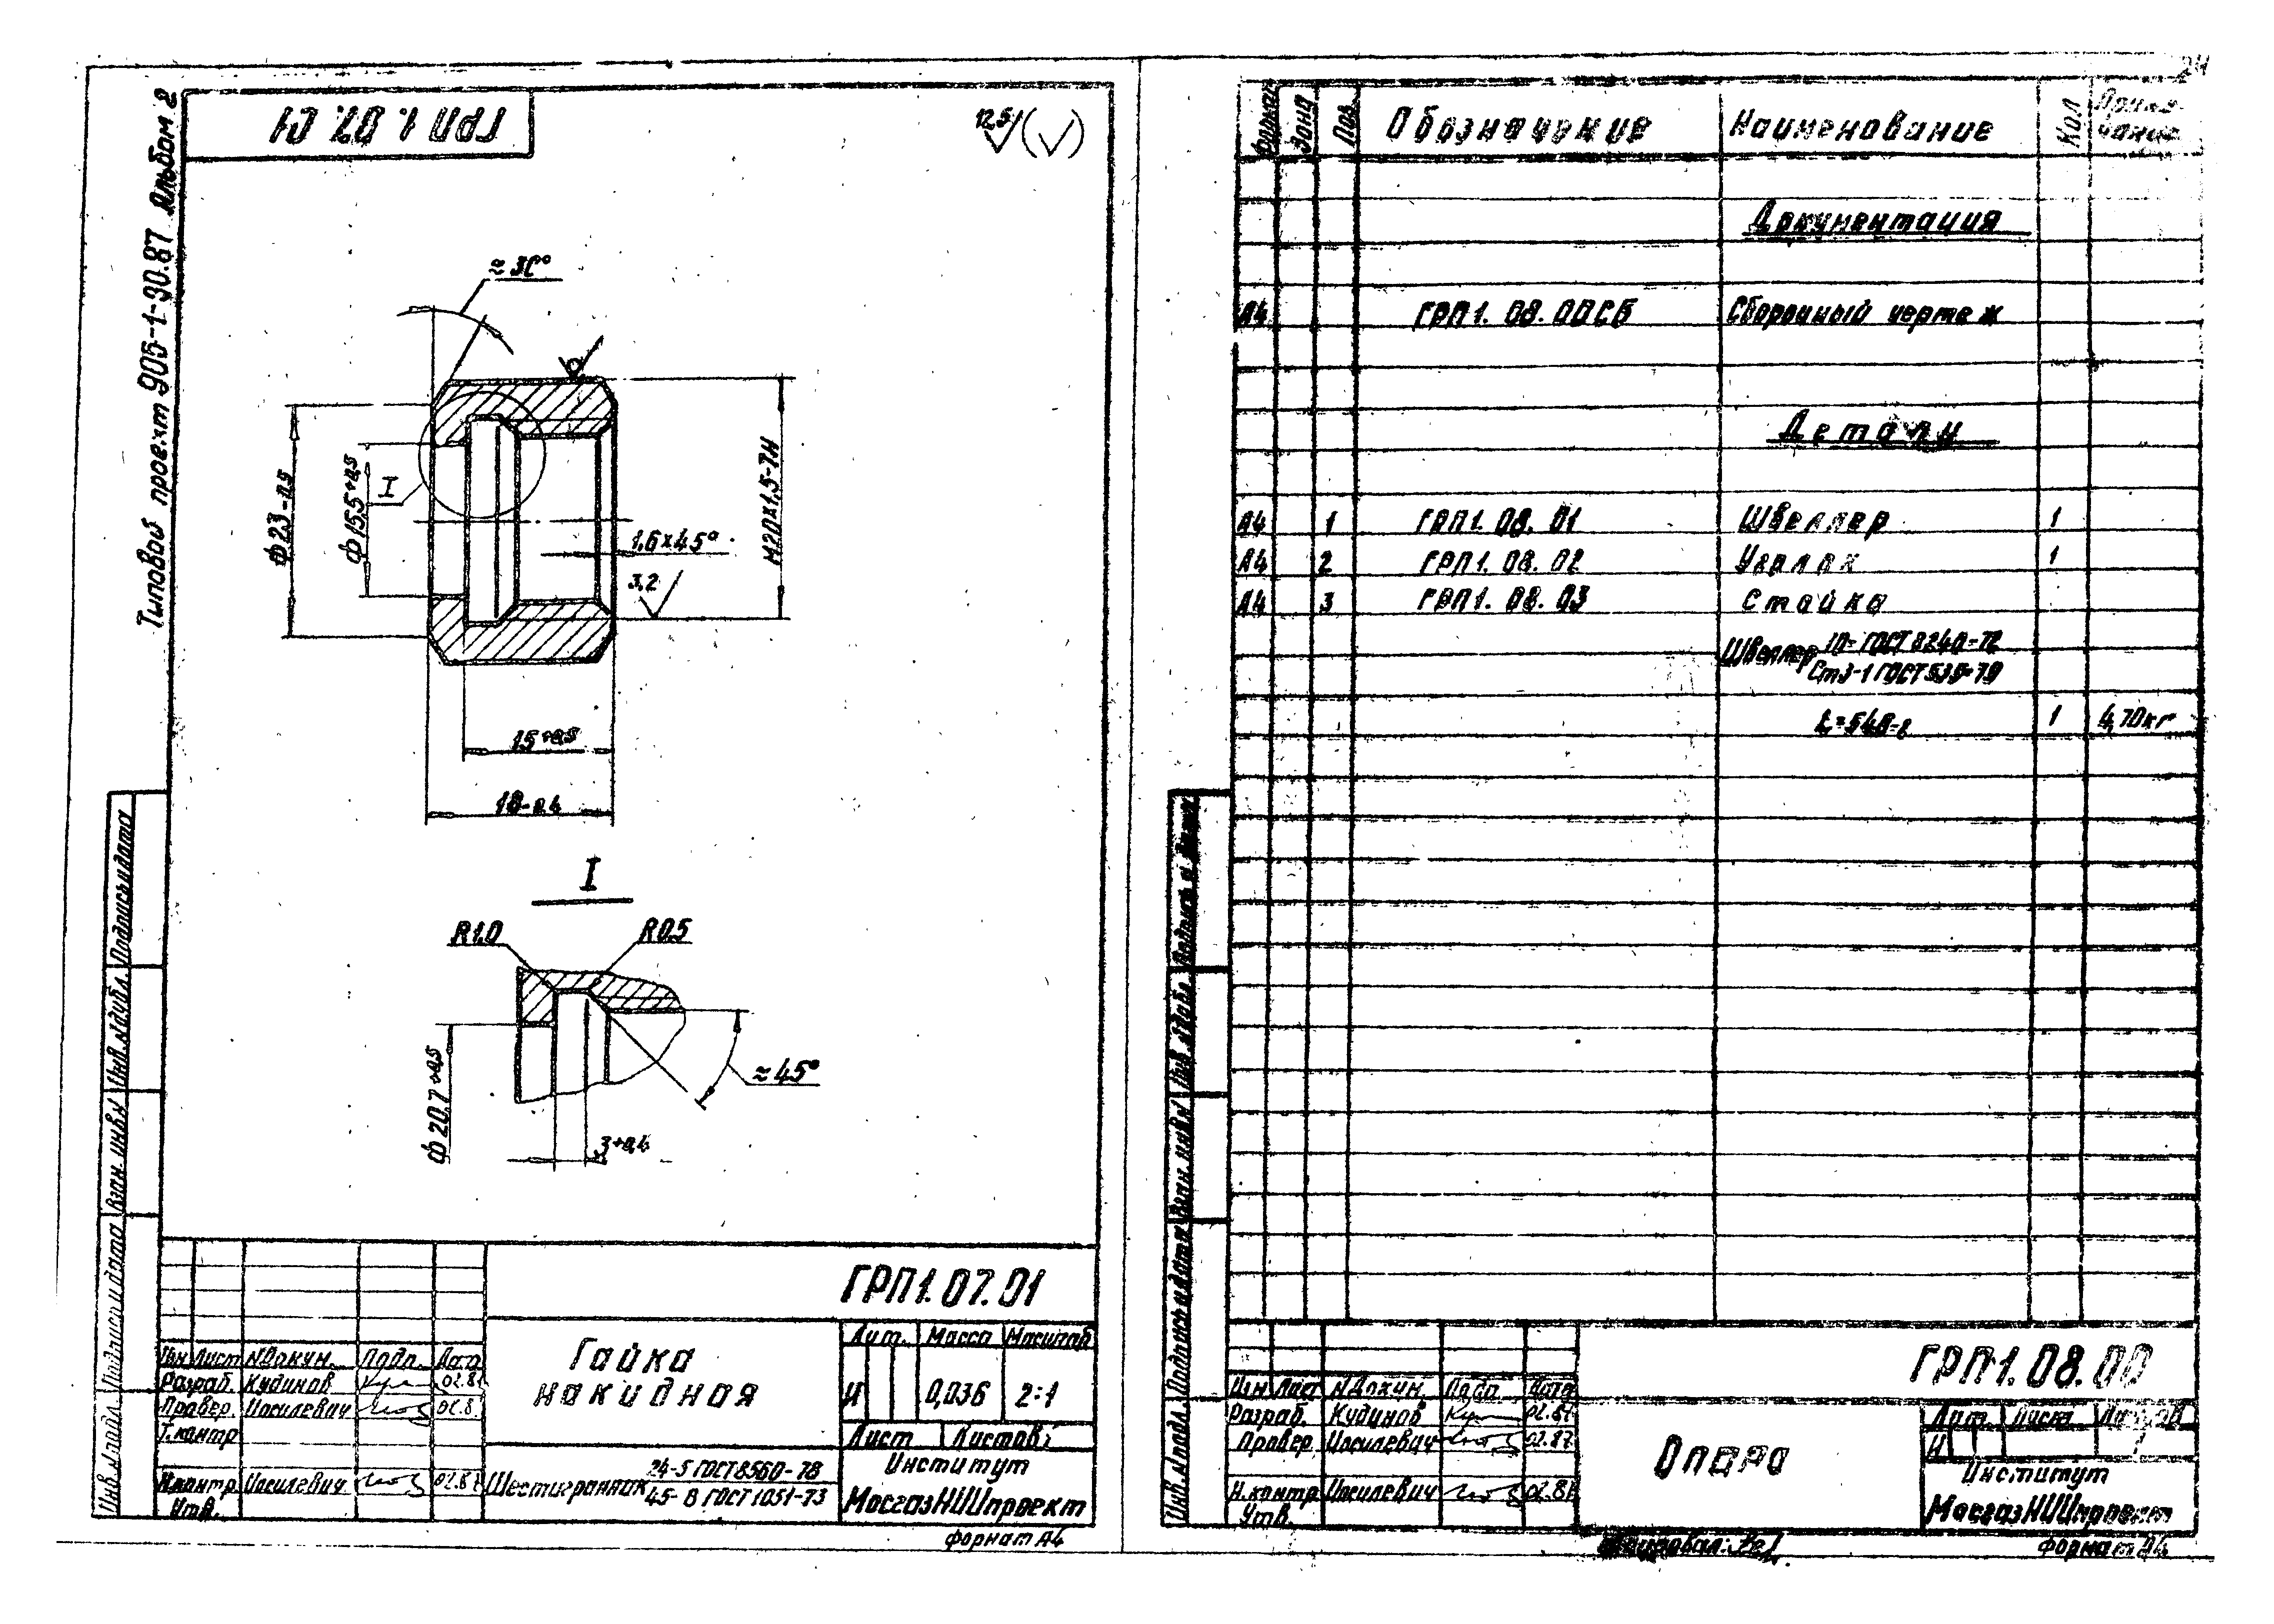 Типовой проект 905-1-30.87 Альбом 2
ГРП 1. 07. 01
12,5 (√)
≈30°
Ф23-0,5
Ф15,5+0,5
I
1,6×45°
3,2
М20×1,5-7Н
15+0,5
18-0,4
I
R1,0
R0,5
Ф20,7+0,5
≈45°
3+0,4
Подпись и дата
Инв.№дубл.
Взам. инв.№
Подпись и дата
Инв.№подл.
ГРП1.07.01
Гайка
накидная
Лит. Масса Масштаб
И 0,036 2:1
Лист Листов 1
Изм Лист №Докум. Подп. Дата
Разраб. Кудинов 02.87
Провер. Иосилевич 02.87
Т.контр
Н.контр. Иосилевич 02.87
Утв.
Шестигранник 24-5 ГОСТ 8560-78
45-В ГОСТ 1051-73
Институт
МосгазНИИпроект
Формат А4
24
Формат Зона Поз. Обозначение Наименование Кол Приме-
чание
Документация
А4 ГРП1. 08. 00СБ Сборочный чертеж
Детали
А4 1 ГРП1. 08. 01 Швеллер 1
А4 2 ГРП1. 08. 02 Уголок 1
А4 3 ГРП1. 08. 03 Стойка
Швеллер 10-ГОСТ 8240-72
Ст3-1 ГОСТ 535-79
L=548-2 1 4,70кг
Подпись и дата
Инв.№дубл.
Взам. инв.№
Подпись и дата
Инв.№подл.
ГРП1.08.00
Изм Лист №Докум. Подп. Дата
Разраб. Кудинов 02.87
Провер. Иосилевич 02.87
Н.контр. Иосилевич 02.87
Утв.
Опора
Лит. Лист Листов
И 1
Институт
МосгазНИИпроект
Копировал:
Формат А4